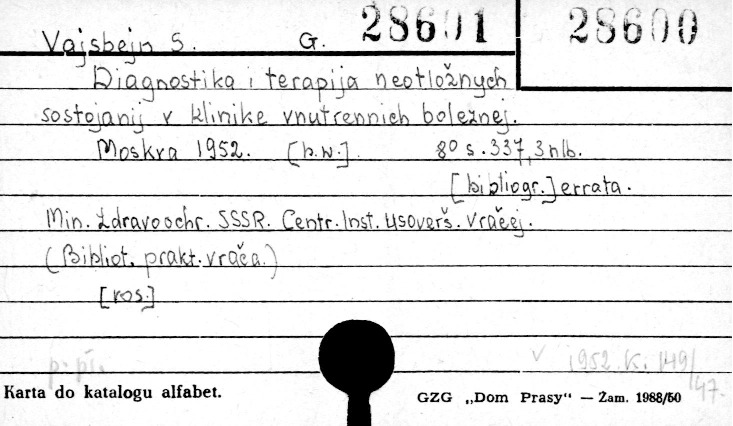 Vajsbejn S. G. 28601 28600
Diagnostika i terapija neotložnych
sostojanij v klinike vnutrennich boleznej.
Moskva 1952. [b.w.]. 8° s. 337, 3 nlb.
[bibliogr.] errata.
Min. Zdravoochr. SSSR. Centr. Inst. Usoverš. vračej.
(Bibliot. prakt. vrača.)
[ros.]
p. pł. V 1952. K. 149/47.
Karta do katalogu alfabet. GZG „Dom Prasy“ — Zam. 1988/50